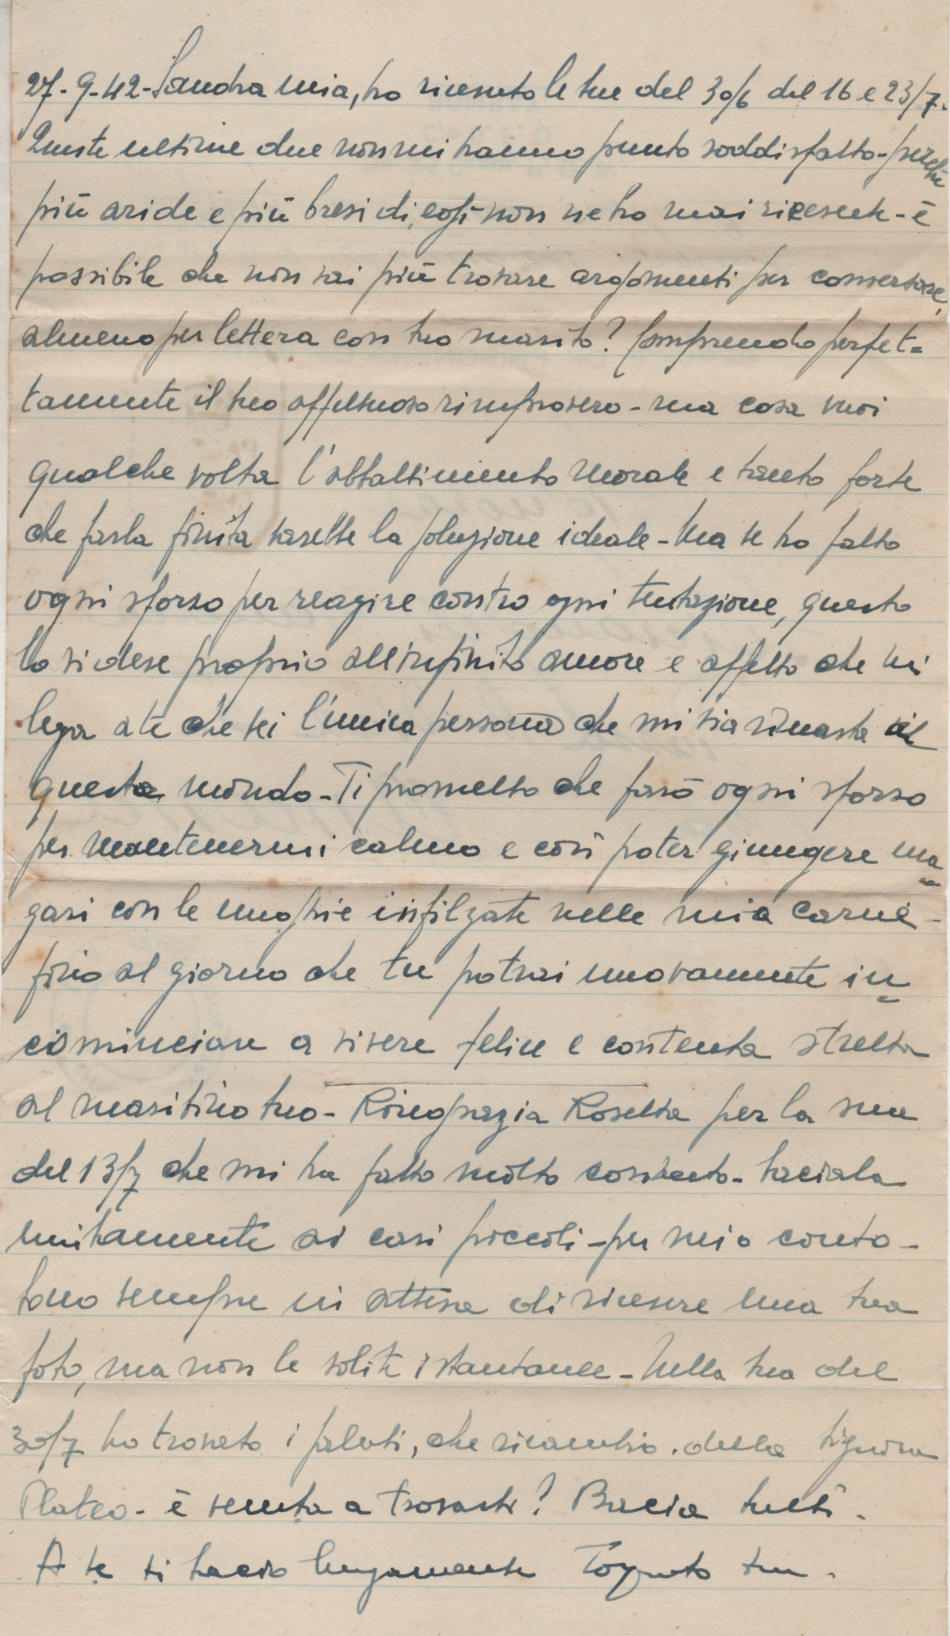 27-9-42-Sandra mia, ho ricevuto le tue del 30/6 del 16 e 23/7.
Queste ultime due non mi hanno punto soddisfatto-perchè
più aride e più brevi di così non ne ho mai ricevute-è
possibile che non sai più trovare argomenti per conversare,
almeno per lettera con tuo marito? Comprendo perfet=
tamente il tuo affettuoso rimprovero-ma cosa vuoi
qualche volta l'abbattimento morale e tanto forte
che farla finita sarebbe la soluzione ideale-Ma se ho fatto
ogni sforzo per reagire contro ogni tentazione, questo
lo si deve proprio all'infinito amore e affetto che mi
lega a te che sei l'unica persona che mi sia rimasta al
questo mondo-Ti prometto che farò ogni sforzo
per mantenermi calmo e così poter giungere ma
gari con le unghie infilzate nelle mia carne-
fino al giorno che tu potrai nuovamente in
cominciare a vivere felice e contenta stretta
al maritino tuo-Ringrazia Rosetta per la sua
del 13/7 che mi ha fatto molto contento-baciala
unitamente ai cari piccoli-per mio conto-
Sono sempre in attesa di ricevere una tua
foto, ma non le solite istantanee-Nella tua del
30/7 ho trovato i saluti, che ricambio, della Signora
Plateo-è venuta a trovarti? Bacia tutti.
A te ti bacio lungamente tuo.